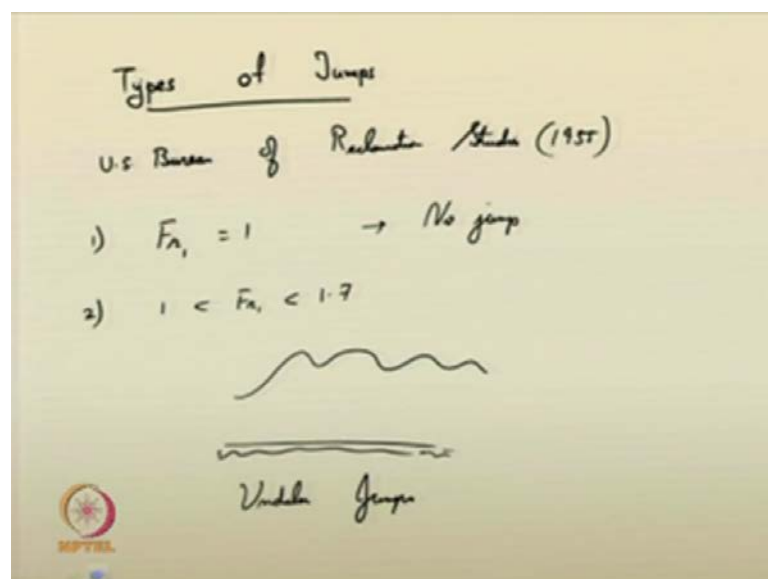 Types of Jumps
U.S Bureau of Reclamation Studies (1955)
1) Fr₁ = 1 → No jump
2) 1 < Fr₁ < 1.7
Undular Jumps
NPTEL